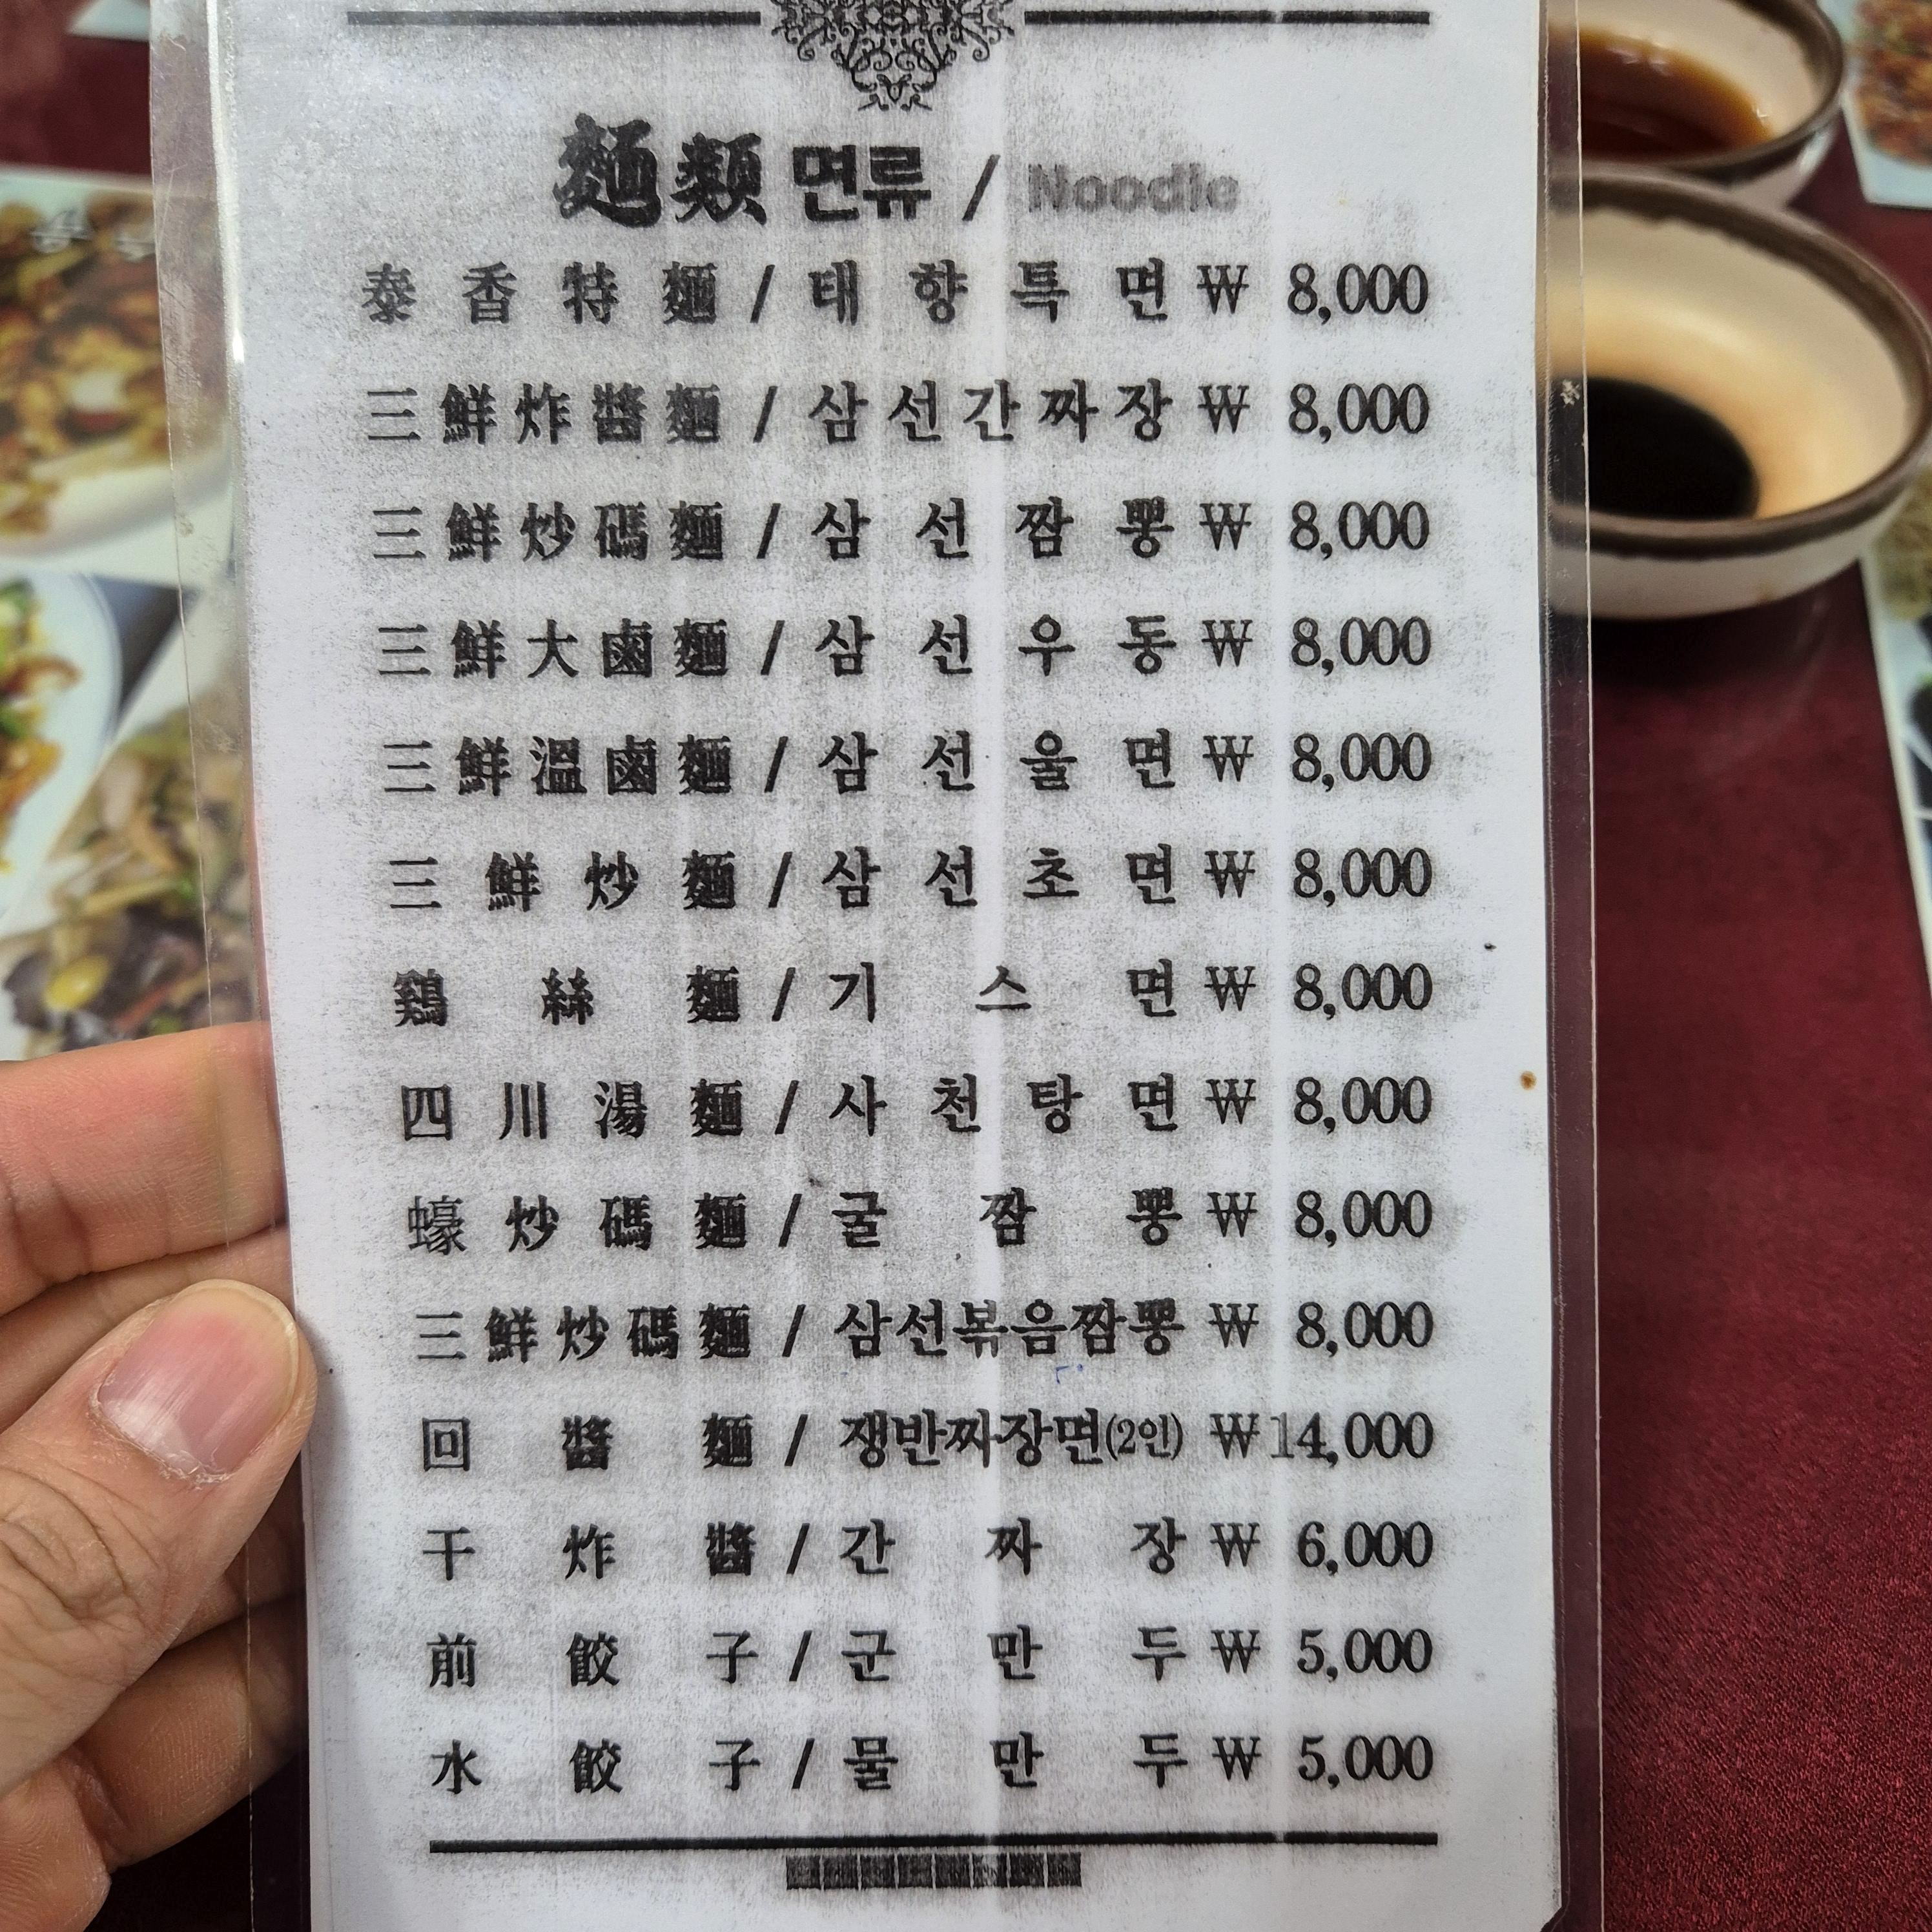 麵類 면류 / Noodle
泰香特麵 / 태향특면 ₩ 8,000
三鮮炸醬麵 / 삼선간짜장 ₩ 8,000
三鮮炒碼麵 / 삼선짬뽕 ₩ 8,000
三鮮大鹵麵 / 삼선우동 ₩ 8,000
三鮮溫鹵麵 / 삼선울면 ₩ 8,000
三鮮炒麵 / 삼선초면 ₩ 8,000
鷄絲麵 / 기스면 ₩ 8,000
四川湯麵 / 사천탕면 ₩ 8,000
蠔炒碼麵 / 굴짬뽕 ₩ 8,000
三鮮炒碼麵 / 삼선볶음짬뽕 ₩ 8,000
回醬麵 / 쟁반짜장면(2인) ₩14,000
干炸醬 / 간짜장 ₩ 6,000
前餃子 / 군만두 ₩ 5,000
水餃子 / 물만두 ₩ 5,000